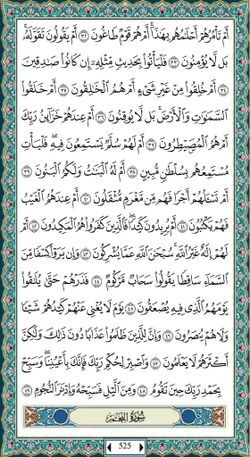 أَمْ تَأْمُرُهُمْ أَحْلَٰمُهُم بِهَٰذَآ أَمْ هُمْ قَوْمٌ طَاغُونَ ٣٢ أَمْ يَقُولُونَ تَقَوَّلَهُۥ
بَل لَّا يُؤْمِنُونَ ٣٣ فَلْيَأْتُوا۟ بِحَدِيثٍ مِّثْلِهِۦٓ إِن كَانُوا۟ صَٰدِقِينَ
٣٤ أَمْ خُلِقُوا۟ مِنْ غَيْرِ شَىْءٍ أَمْ هُمُ ٱلْخَٰلِقُونَ ٣٥ أَمْ خَلَقُوا۟
ٱلسَّمَٰوَٰتِ وَٱلْأَرْضَ ۚ بَل لَّا يُوقِنُونَ ٣٦ أَمْ عِندَهُمْ خَزَآئِنُ رَبِّكَ
أَمْ هُمُ ٱلْمُصَۣيْطِرُونَ ٣٧ أَمْ لَهُمْ سُلَّمٌ يَسْتَمِعُونَ فِيهِ ۖ فَلْيَأْتِ
مُسْتَمِعُهُم بِسُلْطَٰنٍ مُّبِينٍ ٣٨ أَمْ لَهُ ٱلْبَنَٰتُ وَلَكُمُ ٱلْبَنُونَ ٣٩
أَمْ تَسْـَٔلُهُمْ أَجْرًا فَهُم مِّن مَّغْرَمٍ مُّثْقَلُونَ ٤٠ أَمْ عِندَهُمُ ٱلْغَيْبُ
فَهُمْ يَكْتُبُونَ ٤١ أَمْ يُرِيدُونَ كَيْدًا ۖ فَٱلَّذِينَ كَفَرُوا۟ هُمُ ٱلْمَكِيدُونَ ٤٢ أَمْ
لَهُمْ إِلَٰهٌ غَيْرُ ٱللَّهِ ۚ سُبْحَٰنَ ٱللَّهِ عَمَّا يُشْرِكُونَ ٤٣ وَإِن يَرَوْا۟ كِسْفًا مِّنَ
ٱلسَّمَآءِ سَاقِطًا يَقُولُوا۟ سَحَابٌ مَّرْكُومٌ ٤٤ فَذَرْهُمْ حَتَّىٰ يُلَٰقُوا۟
يَوْمَهُمُ ٱلَّذِى فِيهِ يُصْعَقُونَ ٤٥ يَوْمَ لَا يُغْنِى عَنْهُمْ كَيْدُهُمْ شَيْـًٔا
وَلَا هُمْ يُنصَرُونَ ٤٦ وَإِنَّ لِلَّذِينَ ظَلَمُوا۟ عَذَابًا دُونَ ذَٰلِكَ وَلَٰكِنَّ
أَكْثَرَهُمْ لَا يَعْلَمُونَ ٤٧ وَٱصْبِرْ لِحُكْمِ رَبِّكَ فَإِنَّكَ بِأَعْيُنِنَا ۖ وَسَبِّحْ
بِحَمْدِ رَبِّكَ حِينَ تَقُومُ ٤٨ وَمِنَ ٱلَّيْلِ فَسَبِّحْهُ وَإِدْبَٰرَ ٱلنُّجُومِ ٤٩
سُورَةُ النَّجْمِ
525